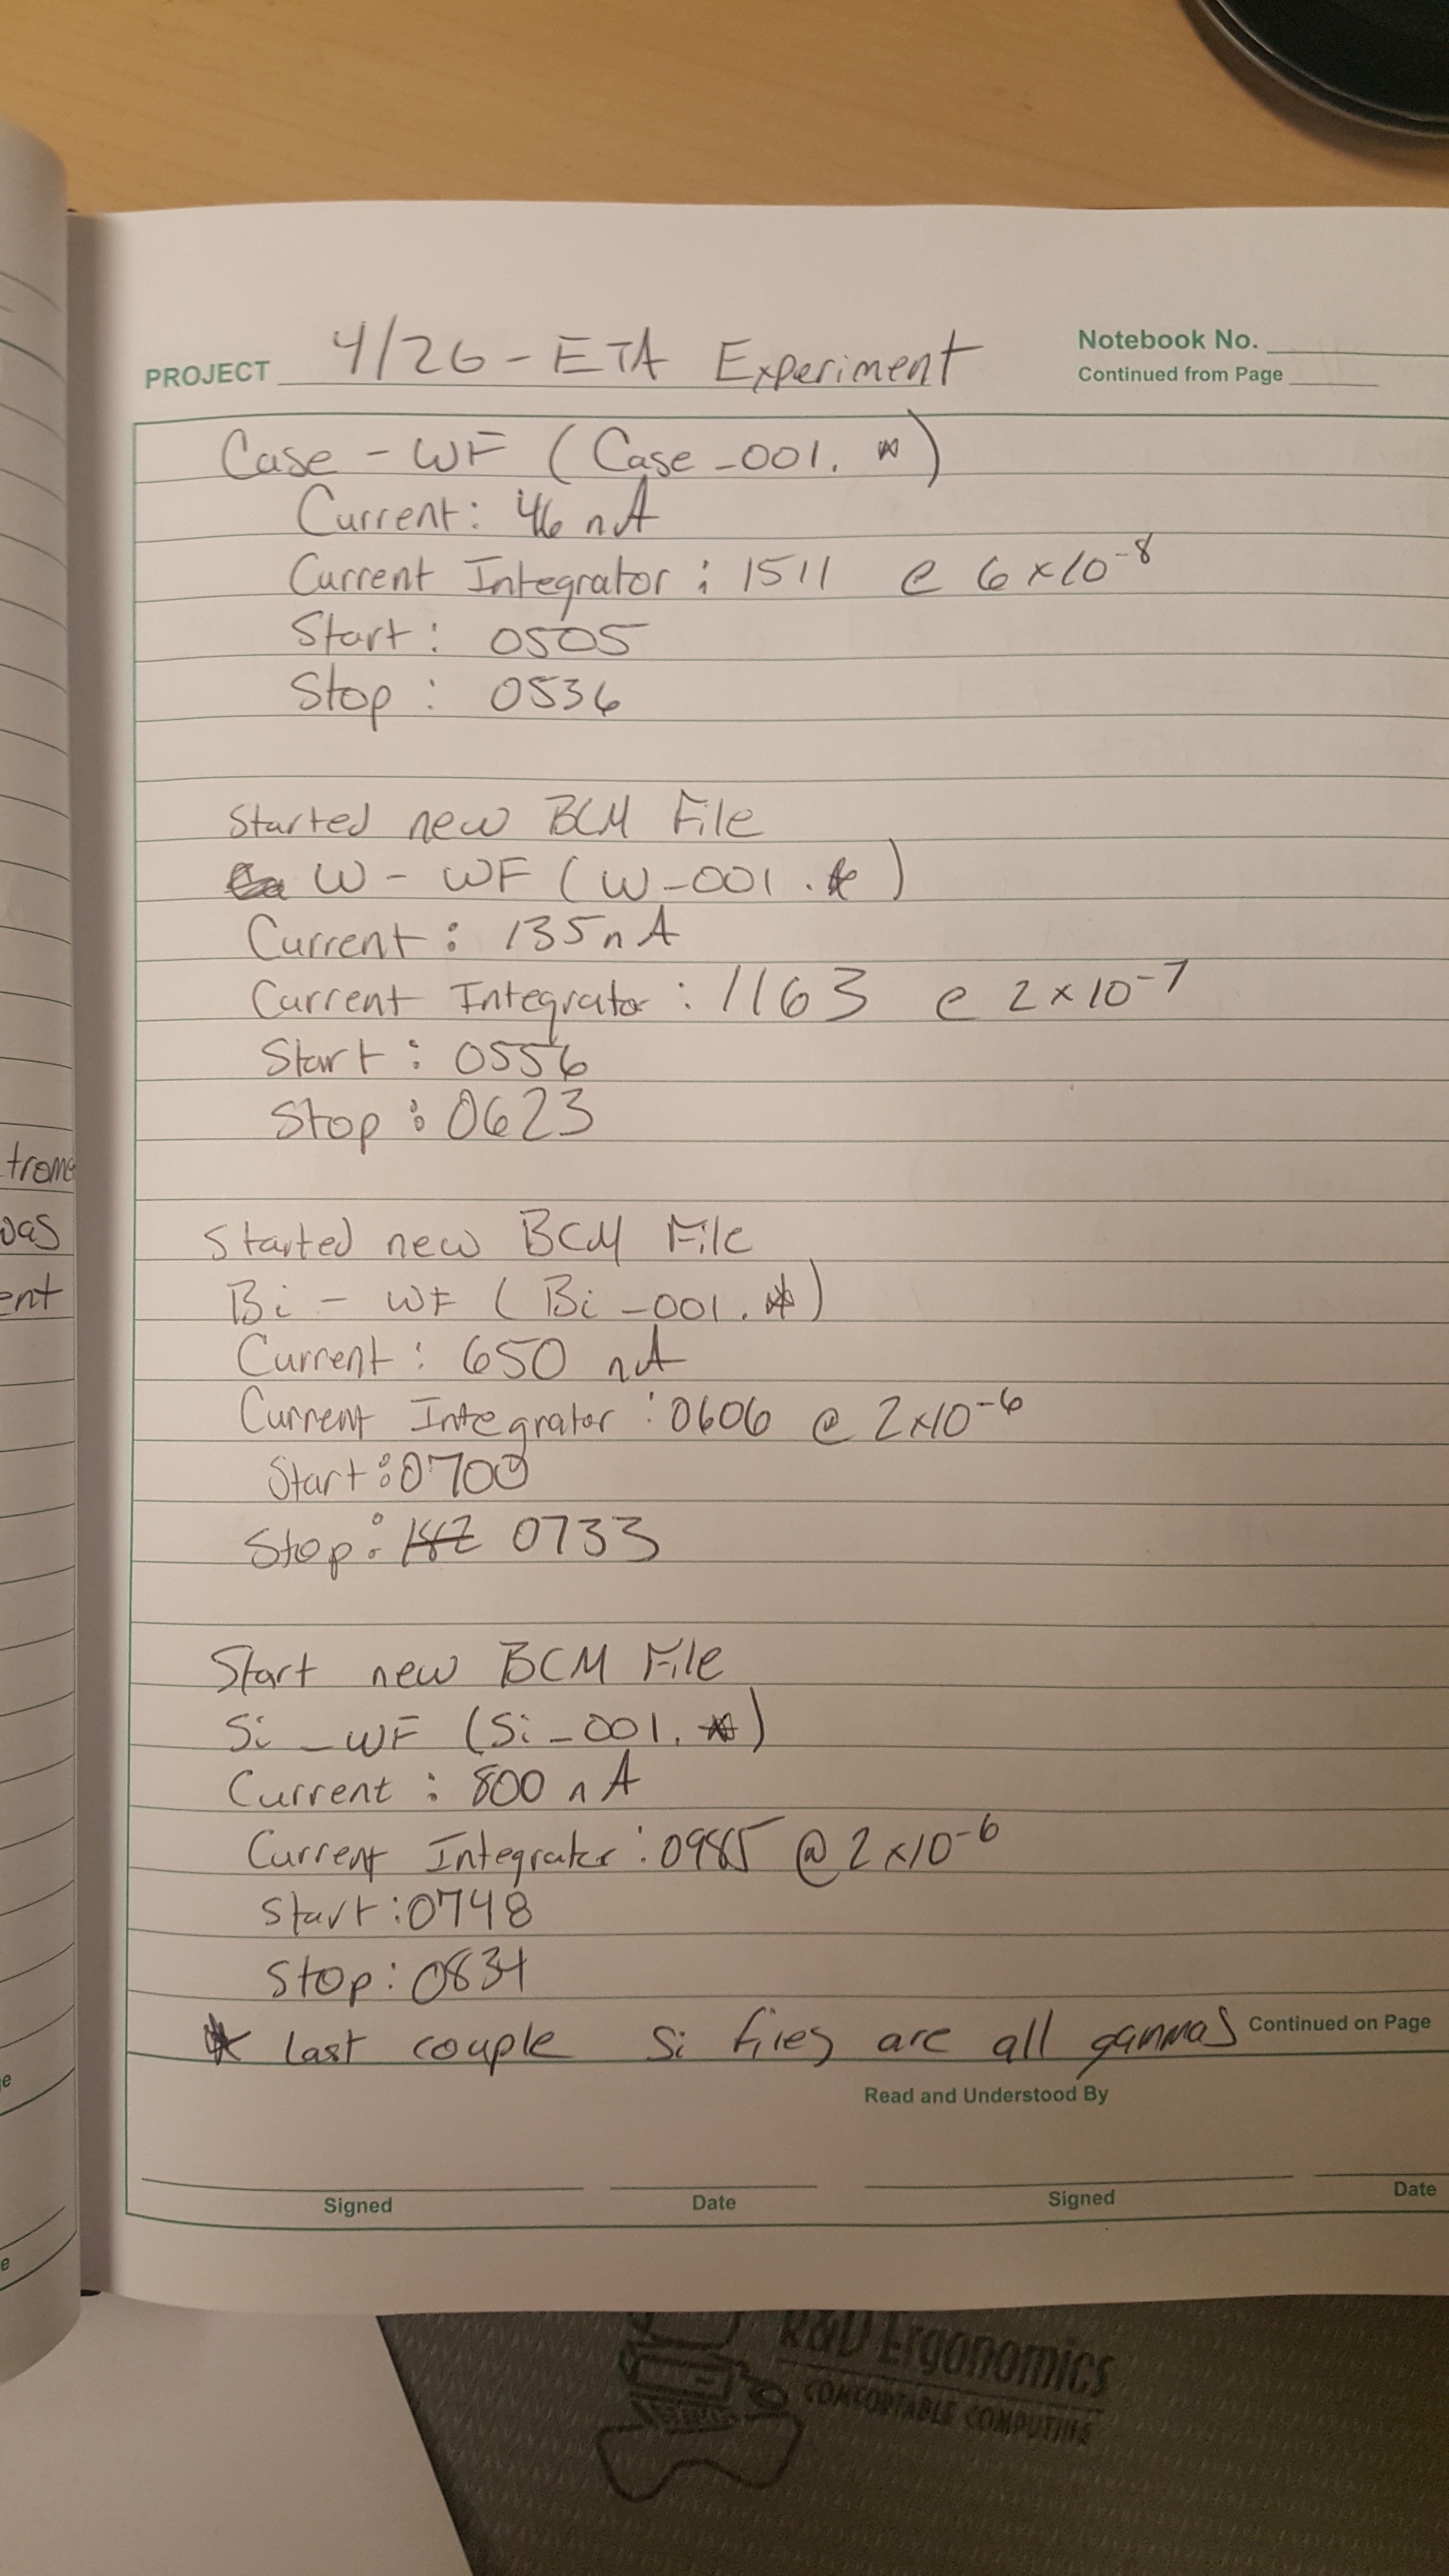 PROJECT 4/26 - ETA Experiment
Notebook No.
Continued from Page
Case - WF (Case_001. *)
Current: 46 nA
Current Integrator: 1511 @ 6x10^-8
Start: 0505
Stop: 0536
Started new BCM File
W - WF (W_001.*)
Current: 135 nA
Current Integrator: 1163 @ 2x10^-7
Start: 0556
Stop: 0623
Started new BCM File
Bi - WF (Bi_001.*)
Current: 650 nA
Current Integrator: 0606 @ 2x10^-6
Start: 0700
Stop: 0733
Start new BCM File
Si _ WF (Si_001. *)
Current: 800 nA
Current Integrator: 0985 @ 2x10^-6
Start: 0748
Stop: 0834
* last couple Si files are all gammas
Continued on Page
Read and Understood By
Signed
Date
Signed
Date
trome
was
ent
e
e
R&D Ergonomics
COMFORTABLE COMPUTING